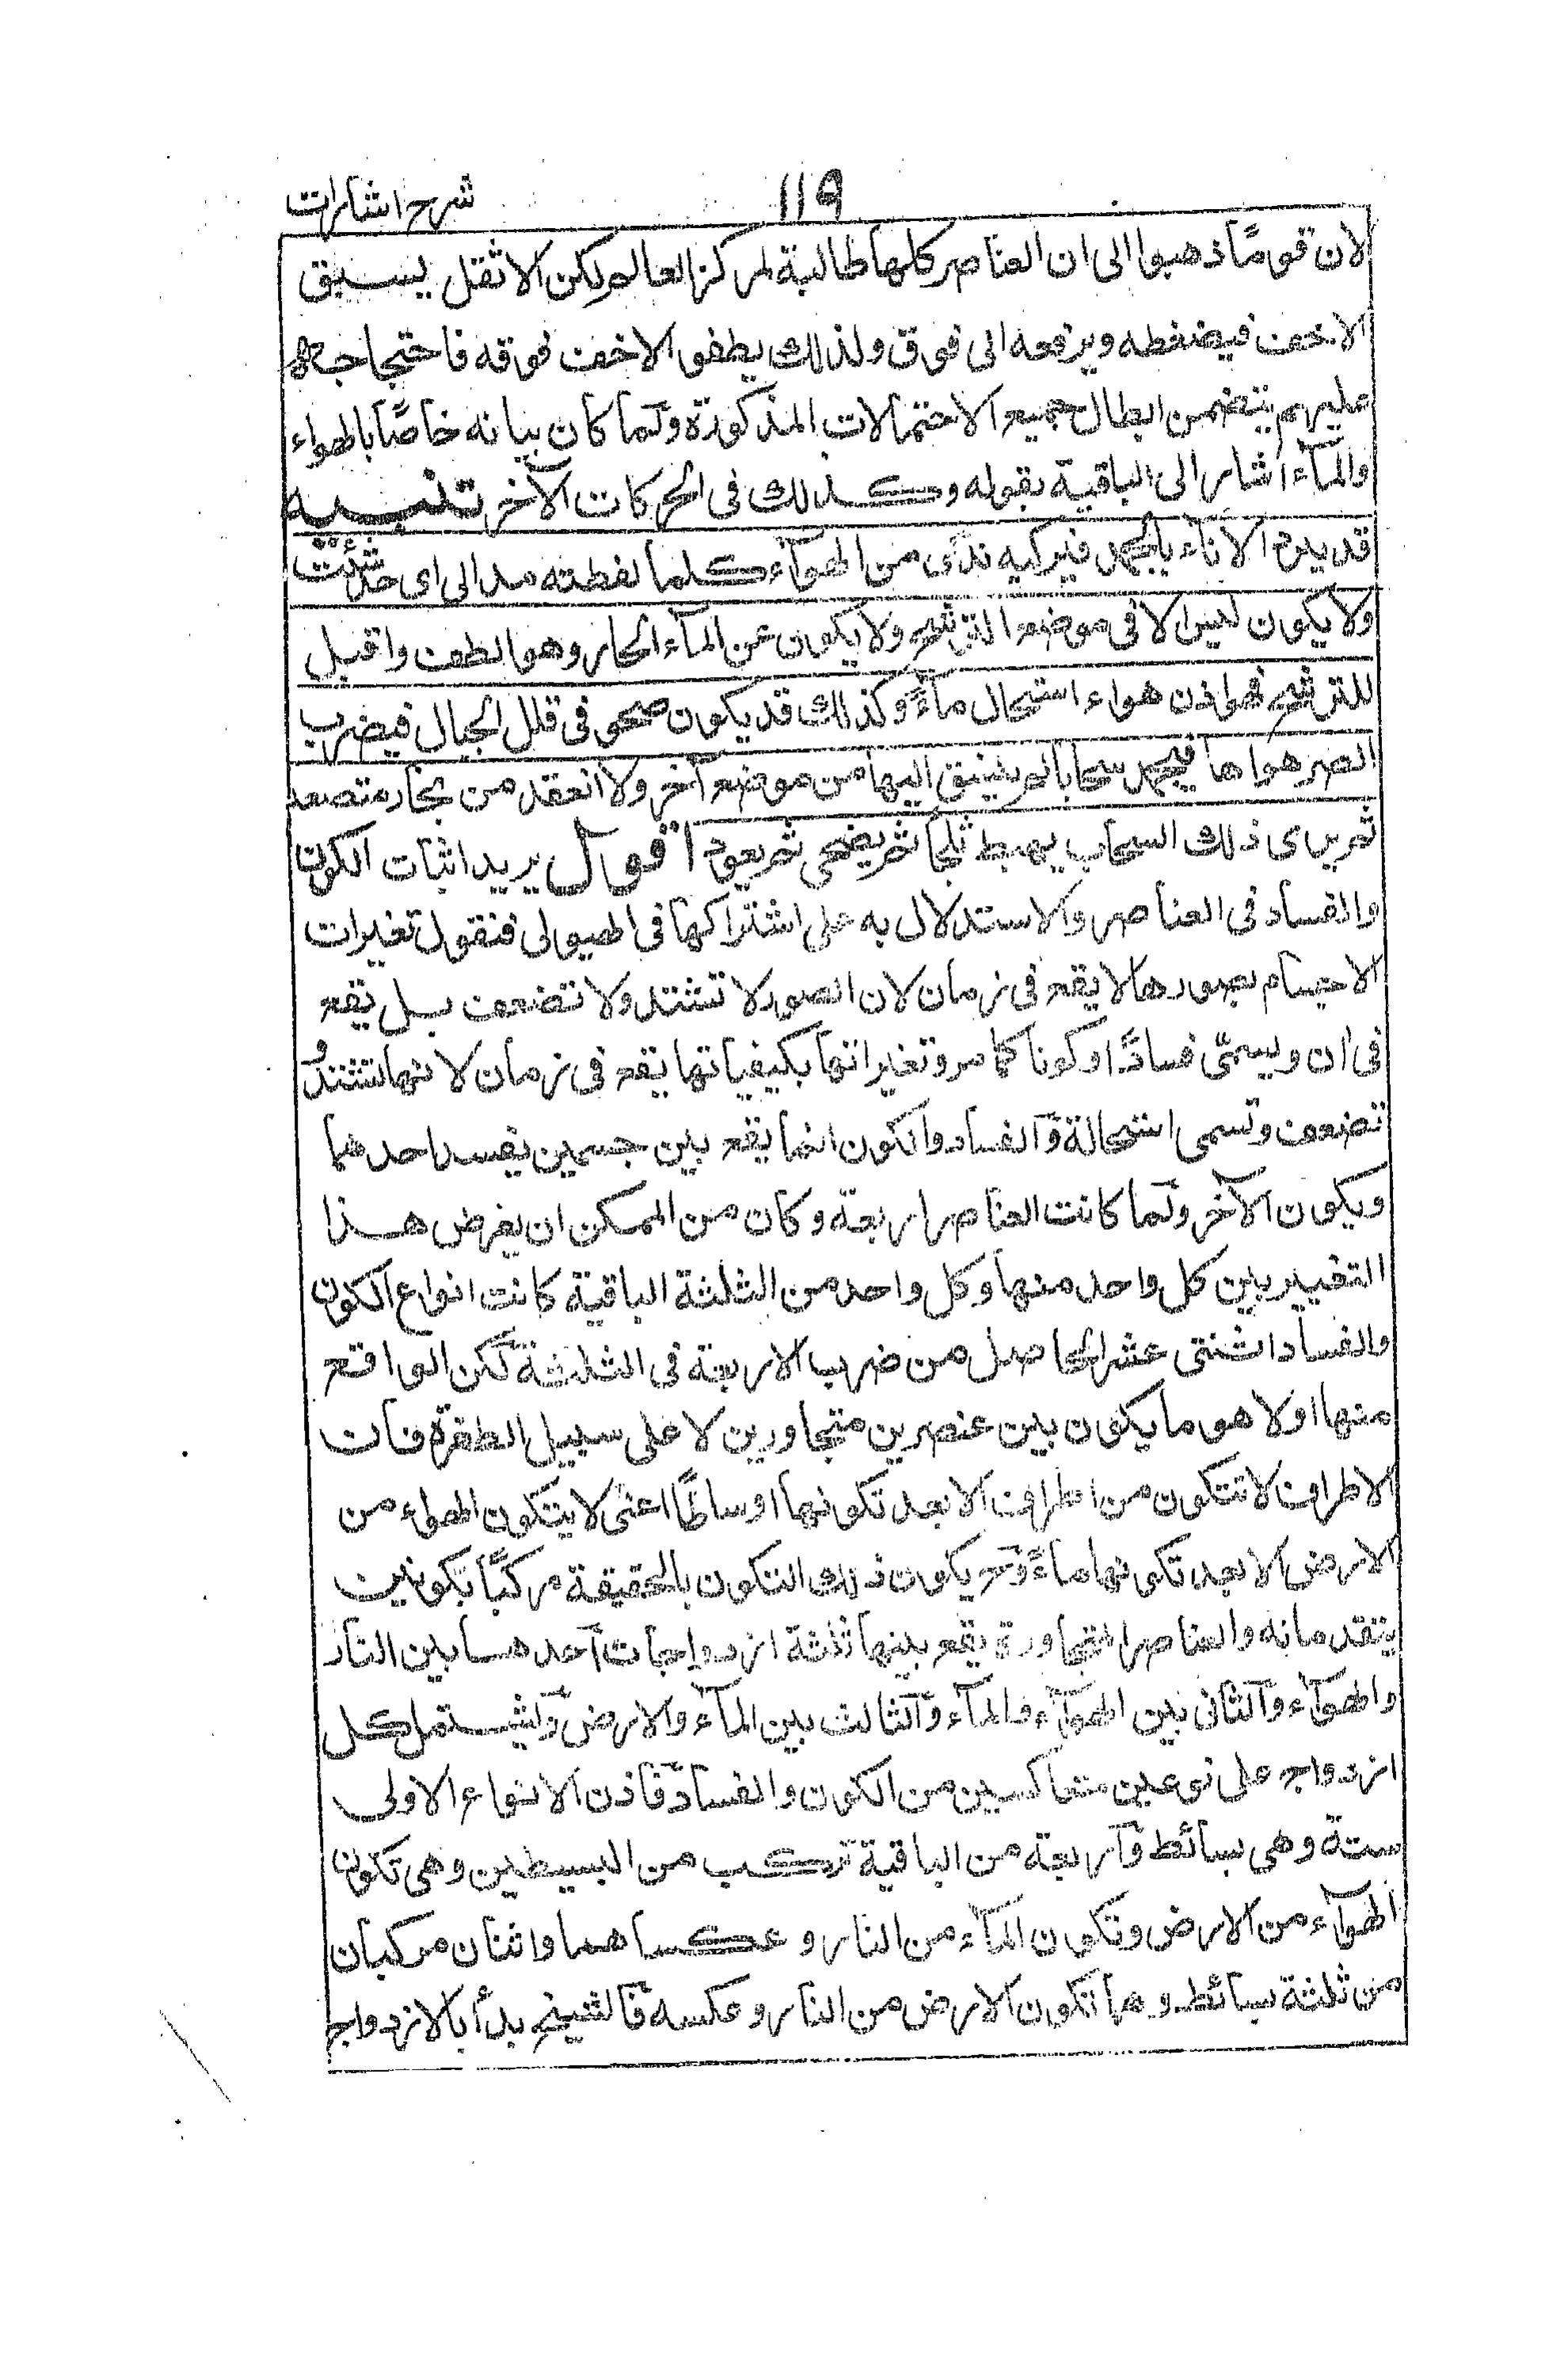 شرح اشارات
١١٩
لان قومًا ذهبوا الى ان العناصر كلها طالبة لمركز العالم ولكن الاثقل يسبق
الاخف فيضغطه ويرفعه الى فوق ولذلك يطفو الاخف فوقه فاحتجاجه
عليهم يتضمن ابطال جميع الاحتمالات المذكورة ولما كان بيانه خاصًا بالهواء
والمآء اشار الى الباقية بقوله وكذلك فى الحركات الآخر تنبيه
قد يبرد الاناء بالجمد فيركبه ندًى من الهوآء كلما لقطته مد الى اى حد شئت
ولا يكون ليس الا فى موضع الترشح ولا يكون عن المآء الحار وهو الطف واقبل
للترشح فهو اذن هواء استحال مآءً وكذلك قد يكون صحو فى قلل الجبال فيضرب
الصر هواها فيجمد سحابا لم ينسق اليها من موضع آخر ولا انعقد من بخار متصعد
ثم يرى ذلك السحاب يهبط ثلجًا ثم يضحى ثم يعود اقول يريد اثبات الكون
والفساد فى العناصر والاستدلال به على اشتراكها فى الهيولى فنقول تغيرات
الاجسام بصورها لا يقع فى زمان لان الصور لا تشتد ولا تضعف بل يقع
فى ان ويسمى فسادًا او كونا كما مر وتغيراتها بكيفياتها يقع فى زمان لانها تشتد و
تضعف وتسمى استحالة والفساد والكون انما يقع بين جسمين يفسد احدهما
ويكون الآخر ولما كانت العناصر اربعة وكان من الممكن ان يفرض هذا
التغيير بين كل واحد منها وكل واحد من الثلثة الباقية كانت انواع الكون
والفساد اثنتى عشر الحاصل من ضرب الاربعة فى الثلثة لكن الواقع
منها اولا هو ما يكون بين عنصرين متجاورين لا على سبيل الطفرة فان
الاطراف لا تتكون من اطراف الا بعد تكونها اوساطًا اعنى لا يتكون الهواء من
الارض الا بعد تكونها مآءً وح يكون ذلك التكون بالحقيقة مركبًا بكونين
يتقدمانه والعناصر المتجاورة يقع بينها ثلثة ازدواجات آحدها بين النار
والهوآء والثانى بين الهوآء والمآء والثالث بين المآء والارض ويشتمل كل
ازدواج على نوعين متعاكسين من الكون والفساد فاذن الانواع الاولى
ستة وهى بسائط واربعة من الباقية تركب من البسيطين وهى تكون
الهوآء من الارض وتكون المآء من النار وعكساهما واثنان مركبان
من ثلثة بسائط وهما تكون الارض من النار وعكسه فالشيخ بدأ بالازدواج